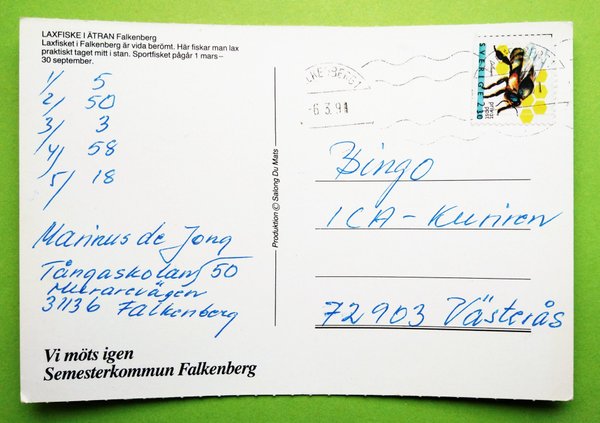 LAXFISKE I ÄTRAN Falkenberg
Laxfisket i Falkenberg är vida berömt. Här fiskar man lax
praktiskt taget mitt i stan. Sportfisket pågår 1 mars–
30 september.
1/ 5
2/ 50
3/ 3
4/ 58
5/ 18
Marinus de Jong
Tångaskolans 50
Murarevägen
31136 Falkenberg
Vi möts igen
Semesterkommun Falkenberg
Produktion © Salong Du Mats
-6.3.94
SVERIGE 2.30
privat
post
Bingo
ICA-Kuriren
72903 Västerås